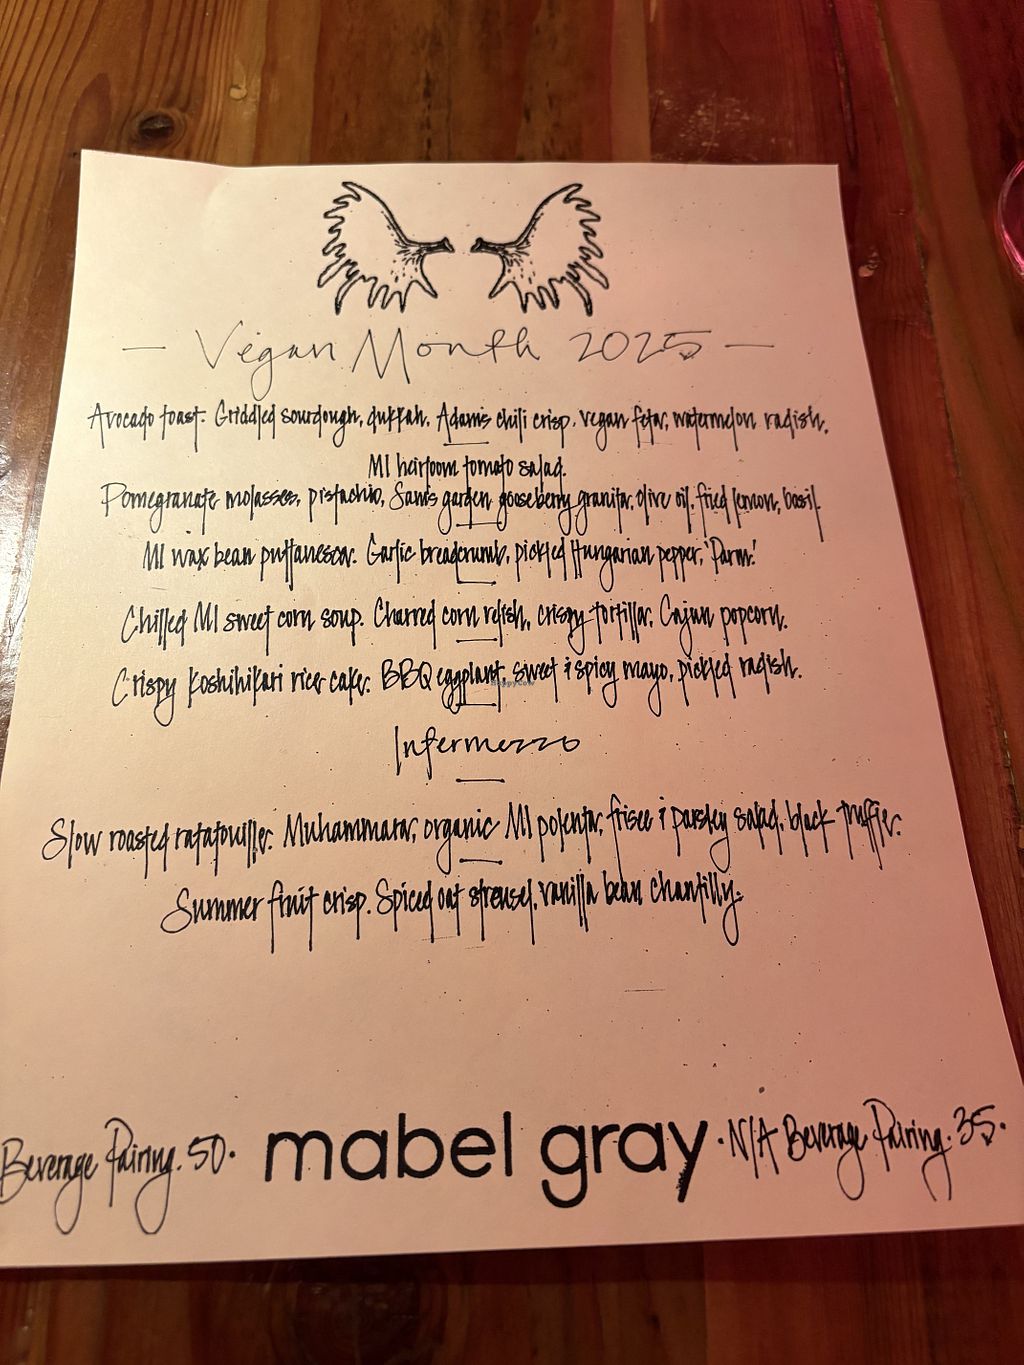 — Vegan Month 2025 —
Avocado toast. Griddled sourdough, dukkah, Adam's chili crisp, vegan feta, watermelon radish.
MI heirloom tomato salad.
Pomegranate molasses, pistachio, Sam's garden gooseberry granita, olive oil, fried lemon, basil.
MI wax bean puttanesca. Garlic breadcrumb, pickled Hungarian pepper, 'Parm.'
Chilled MI sweet corn soup. Charred corn relish, crispy tortilla, Cajun popcorn.
Crispy Koshihikari rice cake. BBQ eggplant, sweet & spicy mayo, pickled radish.
HappyCow
Intermezzo
Slow roasted ratatouille. Muhammara, organic MI polenta, frisee & parsley salad, black truffle.
Summer fruit crisp. Spiced oat streusel, vanilla bean chantilly.
Beverage Pairing. 50. mabel gray . N/A Beverage Pairing. 35.